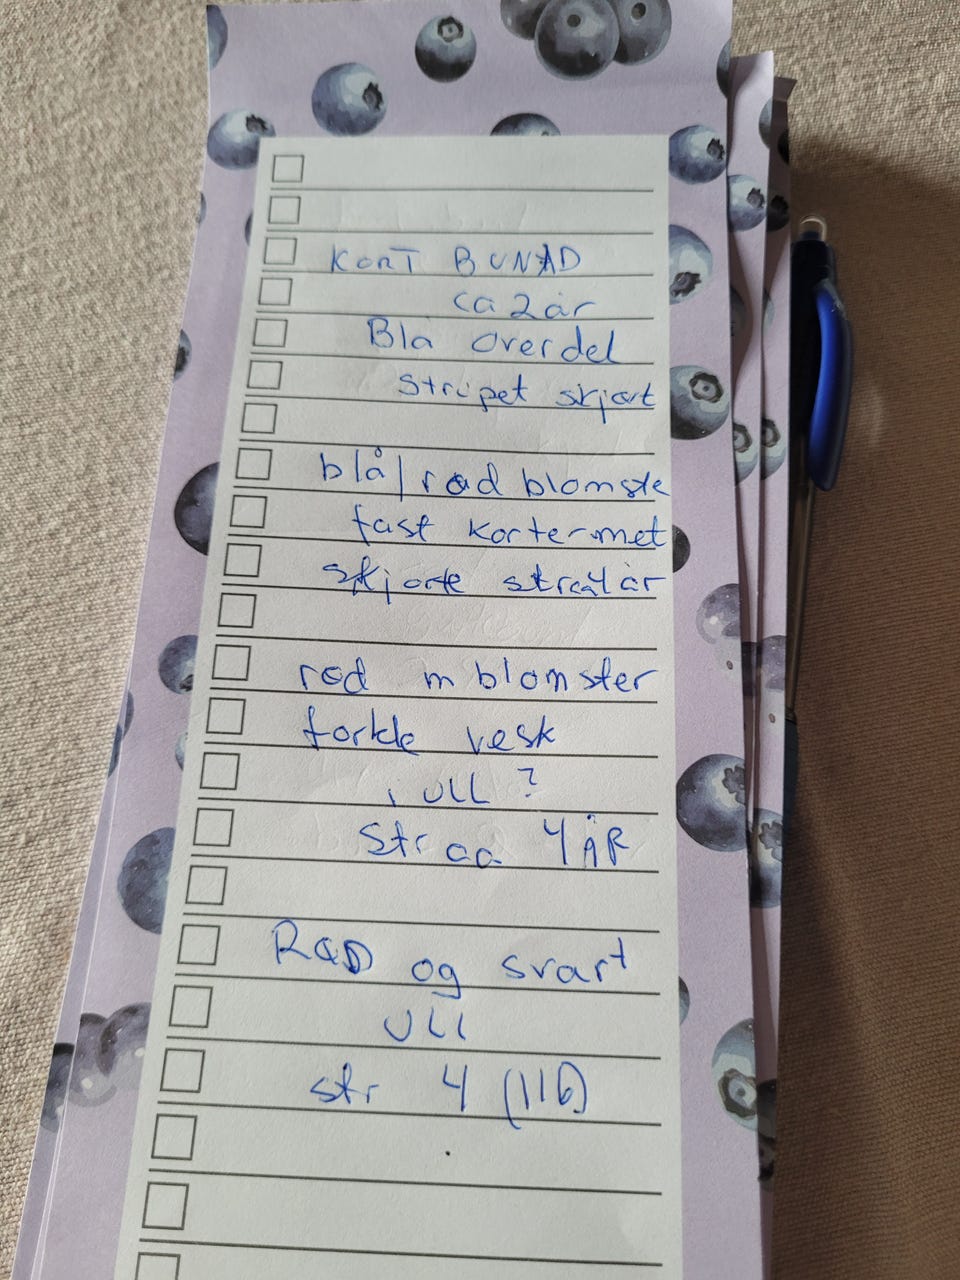 KORT BUNAD
ca 2 år
Blå overdel
stripet skjørt
blå/rød blomste
fast kortermet
skjorte str ca 4 år
rød m blomster
forkle vesk
i ULL ?
Str ca 4 ÅR
RØD og svart
ULL
str 4 (116)